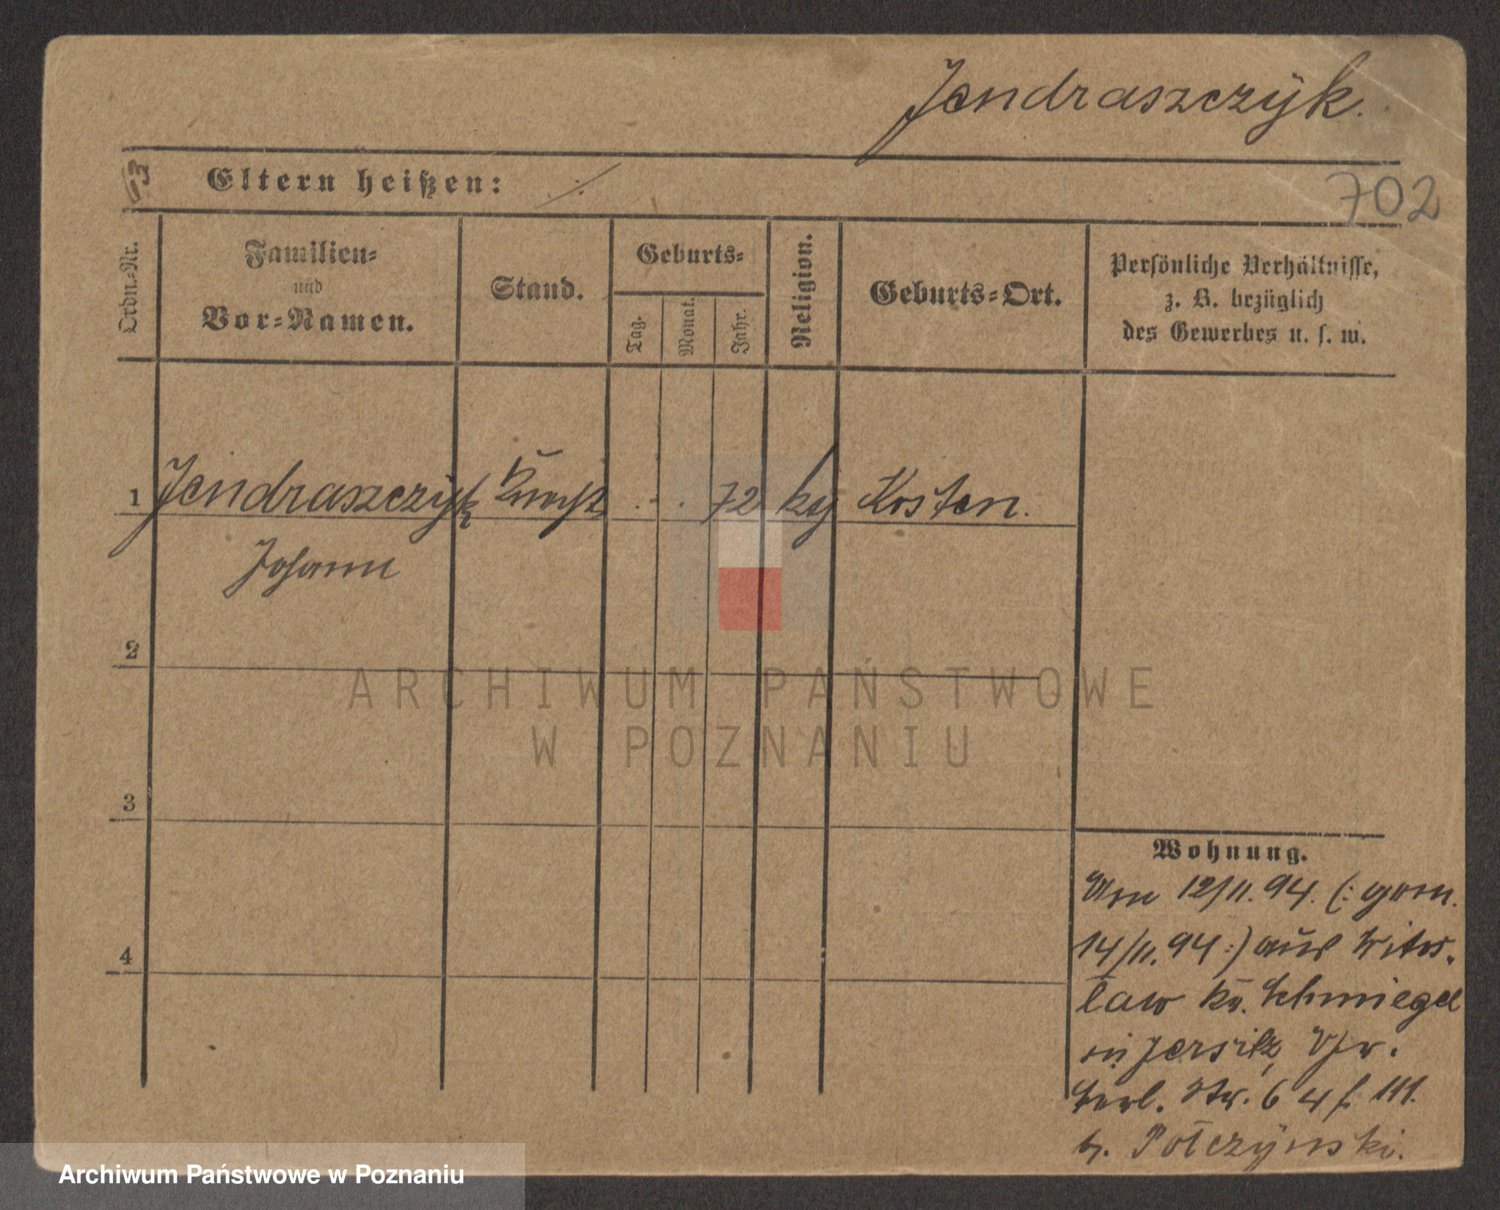 Jendraszczÿk.
Eltern heißen: ./.
702
Ordn.=Nr.
Familien=
und
Vor=Namen.
Stand.
Geburts=
Tag.
Monat.
Jahr.
Religion.
Geburts=Ort.
Persönliche Verhältnisse,
z. B. bezüglich
des Gewerbes u. s. w.
1 Jendraszczÿk . . 72 Kosten.
Johann
2
3
4
Wohnung.
12/11. 94. (: gem.
14/11. 94 :) aus Witos-
law Kr. Schmiegel
in Jersitz,
Str. 6 4 f. III.
b. Potczÿnski.
ARCHIWUM PAŃSTWOWE
W POZNANIU
Archiwum Państwowe w Poznaniu